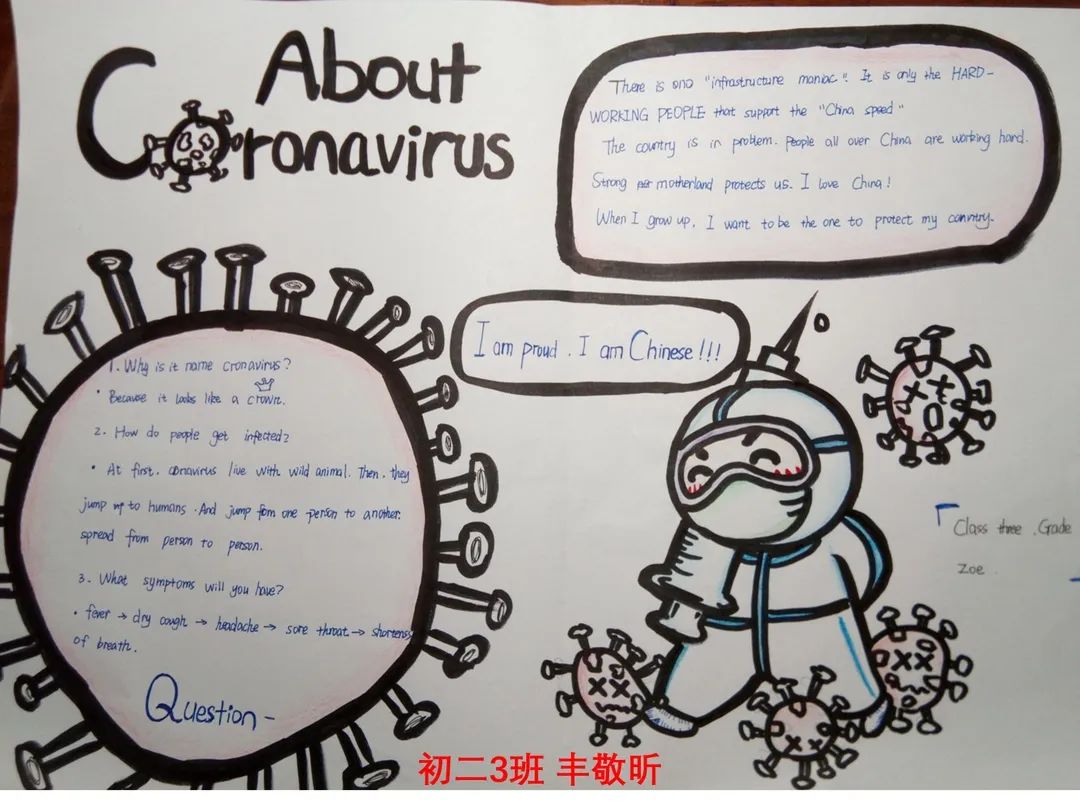 About
Coronavirus
There is ono "infrastructure maniac". It is only the HARD-
WORKING PEOPLE that support the "China speed"
The country is in problem. People all over China are working hard.
Strong motherland protects us. I love China!
When I grow up, I want to be the one to protect my conntry.
I am proud. I am Chinese!!!
1. Why is it name cronavirus?
• Because it looks like a crown.
2. How do people get infected?
• At first. conavirus live with wild animal. Then. they
jump to humans. And jump from one person to another.
spread from person to person.
3. What symptoms will you have?
• fever → dry cough → headache → sore throat → shortenss
of breath.
Question-
Class three. Grade
Zoe.
初二3班 丰敬昕